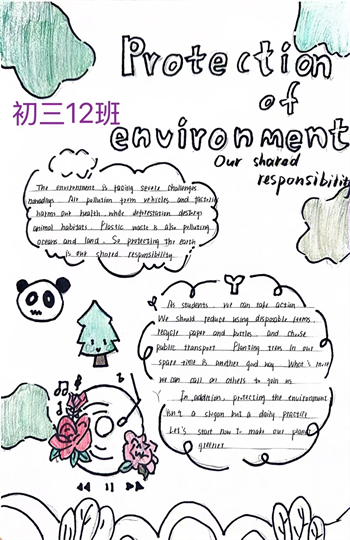 Protection
of
environment
初三12班
Our shared
responsibilit
The environment is facing severe challenges
nowadays. Air pollution from vehicles and factories
harms our health, while deforestation destroys
animal habitats. Plastic waste is also polluting
oceans and land. So protecting the earth
is our shared responsibility.
As students, we can take action.
We should reduce using disposable items,
recycle paper and bottles, and choose
public transport. Planting trees in our
spare time is another good way. What's more
we can call on others to join us
In addition, protecting the environment
isn't a slogan but a daily practice
Let's start now to make our planet
greener.